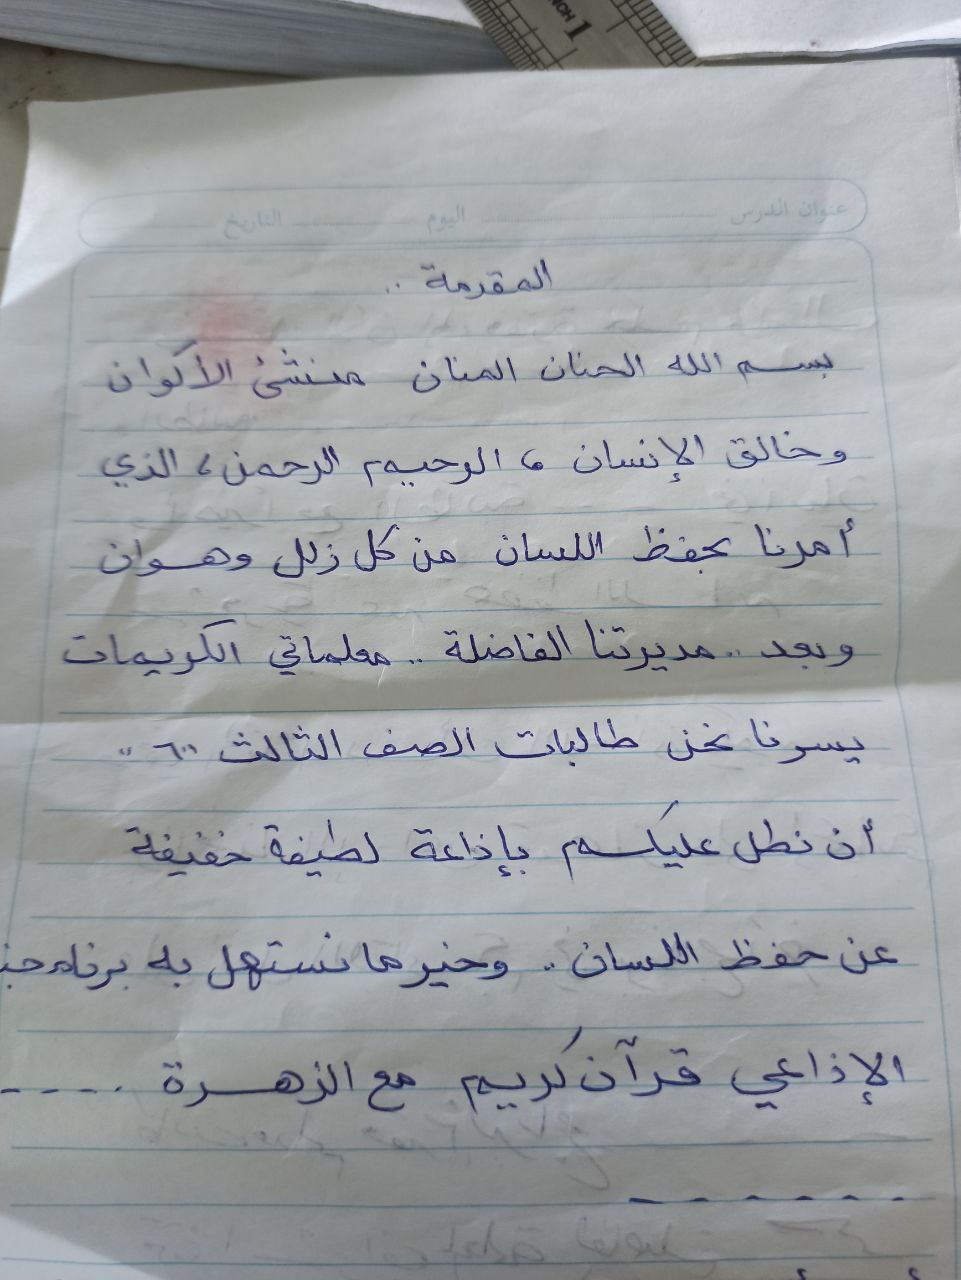 INCH 1
عنوان الدرس اليوم التاريخ
المقدمة ..
بسم الله الحنان المنان منشئ الأكوان
وخالق الإنسان ، الرحيم الرحمن ، الذي
أمرنا بحفظ اللسان من كل زلل وهوان
وبعد .. مديرتنا الفاضلة .. معلماتي الكريمات
يسرنا نحن طالبات الصف الثالث "٦"
أن نطل عليكم بإذاعة لطيفة خفيفة
عن حفظ اللسان .. وخير ما نستهل به
الإذاعي قرآن كريم مع الزهرة ....